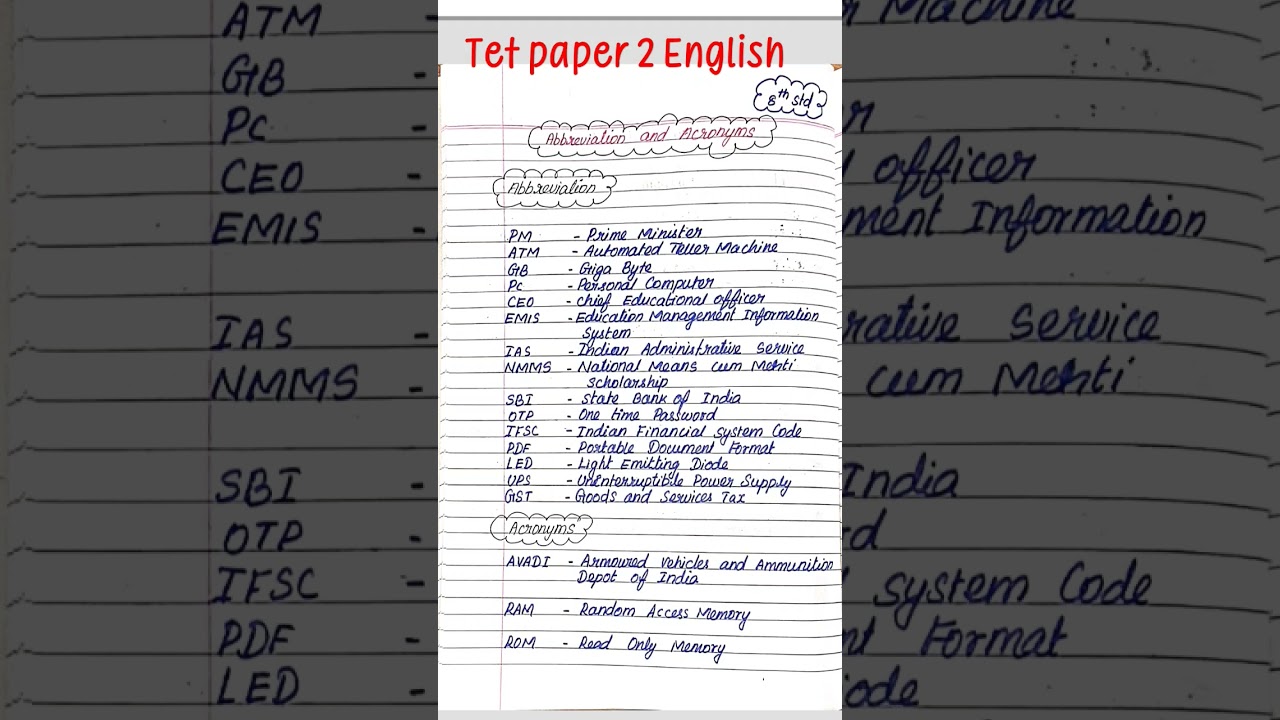 ATM
GB -
PC -
CEO -
EMIS -
IAS -
NMMS -
SBI -
OTP -
IFSC -
PDF -
LED -
Tet paper 2 English
8th std
Abbreviation and Acronyms
Abbreviation
PM - Prime Minister
ATM - Automated Teller Machine
GB - Giga Byte
PC - Personal Computer
CEO - Chief Educational officer
EMIS - Education Management Information
System
IAS - Indian Administrative Service
NMMS - National Means cum Merti
Scholarship
SBI - State Bank of India
OTP - One time Password
IFSC - Indian Financial system Code
PDF - Portable Document Format
LED - Light Emitting Diode
UPS - Uninterruptible Power Supply
GST - Goods and Services Tax
Acronyms
AVADI - Armoured vehicles and Ammunition
Depot of India
RAM - Random Access Memory
ROM - Read Only Memory
r Machine
r
officer
ment Information
rative Service
cum Merti
India
d
system Code
nt Format
ode